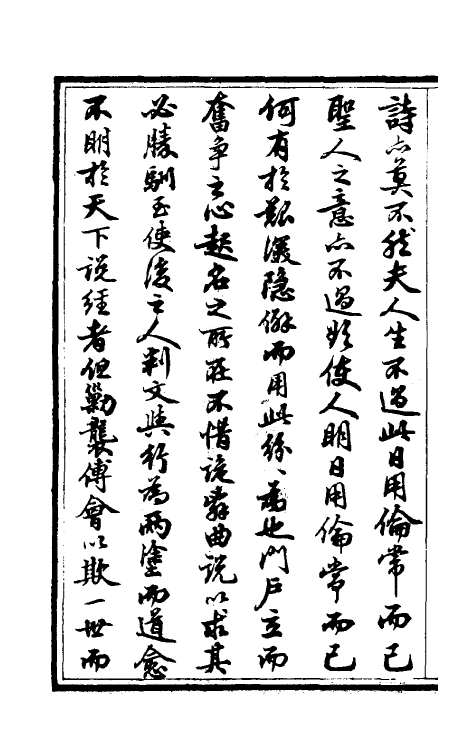 詩亦莫不然夫人生不過此日用倫常而已
聖人之意亦不過欲使人明日用倫常而已
何有於艱深隱僻而用此紛〻為也門戶立而
奮爭之心起名之所在不惜詭辭曲說以求其
必勝馴至使後之人判文與行為兩塗而道愈
不明於天下說經者但勦襲傅會以欺一世而